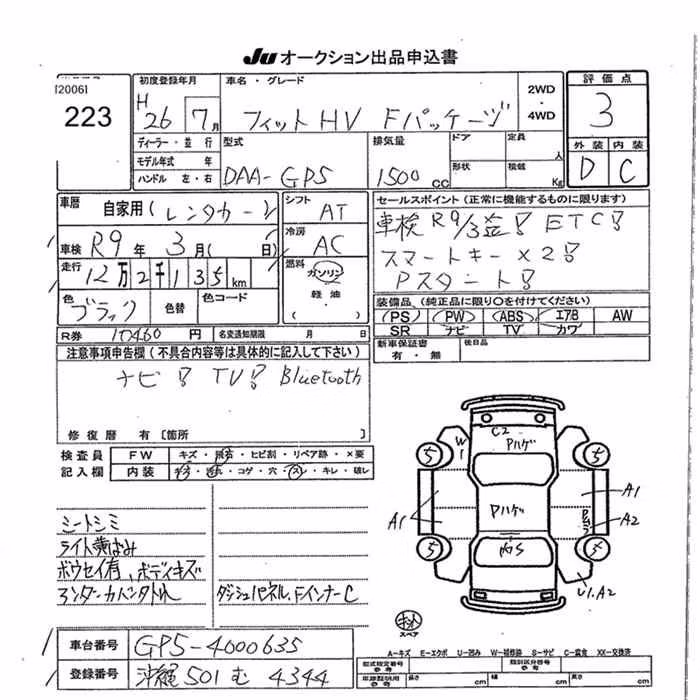 Ju オークション出品申込書
[2006]
223
初度登録年月
H 26 7月
車名・グレード
フィットHV Fパッケージ
2WD
・
4WD
評価点
3
ディーラー・並行
モデル年式 年
ハンドル 左・右
型式
DAA-GP5
排気量
1500 cc
ドア
定員
人
形状
積載
Kg
外装 内装
D C
車歴
自家用(レンタカー)
シフト
AT
車検 R9年 3月( 日)
冷房
AC
走行
12万2千135km
燃料
ガソリン
軽油
色
ブラック
色替
色コード
セールスポイント(正常に機能するものに限ります)
車検R9/3迄! ETC!
スマートキー×2!
Pスタート!
装備品(純正品に限り○を付けてください)
PS PW ABS エアB AW
SR ナビ TV カワ
R券 10460円
名変通知期限 月 日
注意事項申告欄(不具合内容等は具体的に記入して下さい)
ナビ! TV! Bluetooth
新車保証書
有・無
後日品
修復歴 有〔箇所 〕
検査員
記入欄
FW
キズ・飛石・ヒビ割・リペア跡・×要
内装
キズ・汚れ・コゲ・穴・スレ・キレ・破レ
シートシミ
ライト黄ばみ
ボウセイ有、ボディキズ
アンダーカバータレ
ダッシュパネル、FインナーC
C2
Pハゲ
W1
5
5
A1
Pハゲ
A1
A2
5
内S
5
U1.A2
スペア
車台番号
GP5-4000635
登録番号
沖縄 501 む 4344
A-キズ E-エクボ U-凹み W-補修跡 S-サビ C-腐食 XX-交換済
型式指定番号
類別区分番号
長さ cm
幅 cm
高さ cm